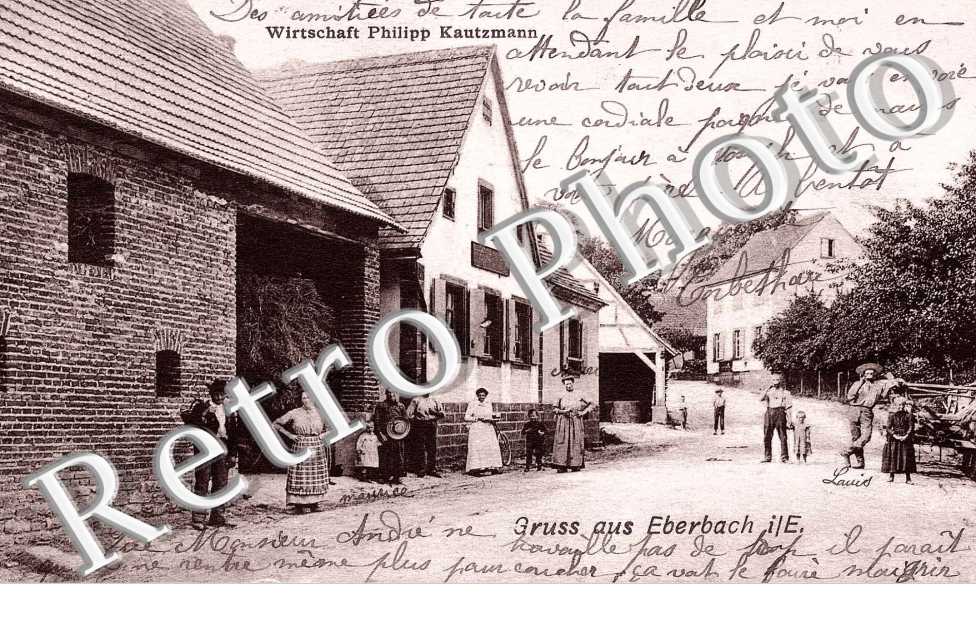 Des amitiées de toute la famille et moi en
Wirtschaft Philipp Kautzmann
attendant le plaisir de vous
revoir tout deux je vous envoie
une cordiale poignée de mains
le bonjour à et à
bientôt
Retro Photo
Maurice
Louis
Gruss aus Eberbach i/E.
Monsieur André ne travaille pas de trop il paraît
ne rentre même plus pour coucher, ça vat le faire maigrir